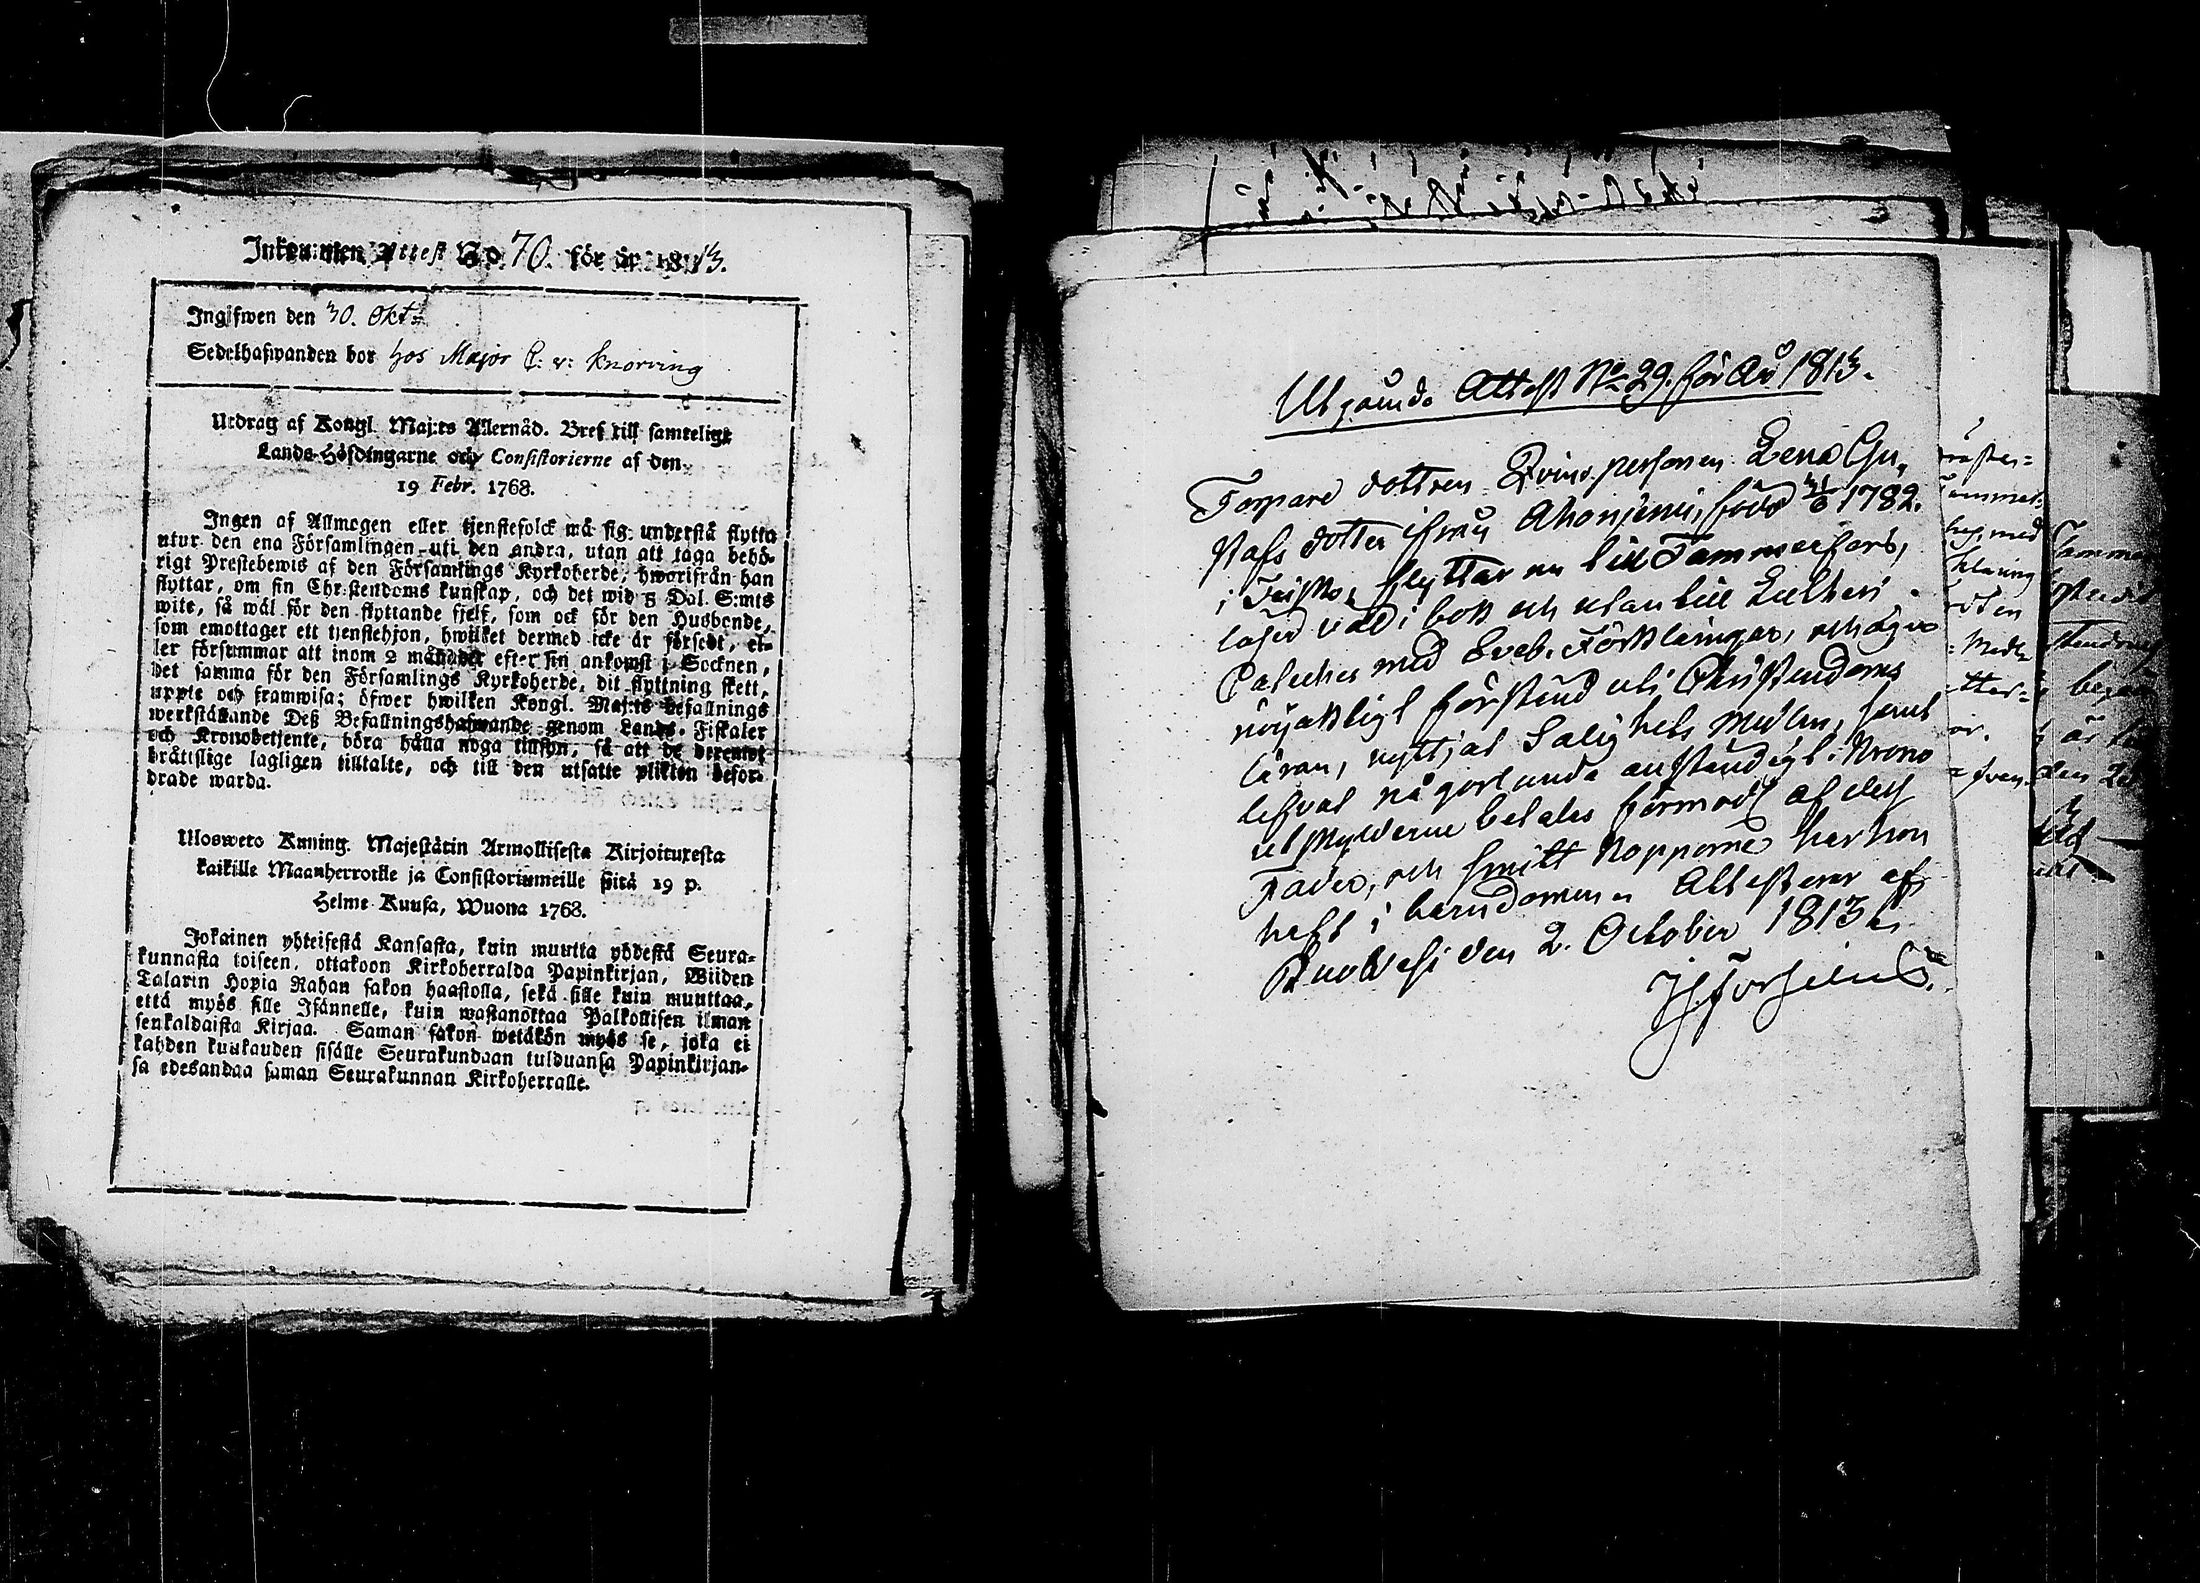 Inkommen Attest No 70. för år 1813.
Ingifwen den 30. Okt:
Sedelhafwanden bor hos Major C. v: Knorring
Utdrag af Kongl. Maj:ts Allernåd. Bref till samteliga
Lands-Höfdingarne och Consistorierne af den
19 Febr. 1768.
Ingen af Allmogen eller tjenstefolck må sig understå flytta
utur den ena Församlingen uti den andra, utan att taga behö-
rigt Prestebewis af den Församlings Kyrkoherde, hworifrån han
flyttar, om sin Christendoms kunskap, och det wid 5 Dal. S:mts
wite, så wäl för den flyttande sjelf, som ock för den Husbonde,
som emottager ett tjenstehjon, hwilket dermed icke är försedt, el-
ler försummar att inom 2 månader efter sin ankomst i Socknen,
det samma för den Församlings Kyrkoherde, dit flyttning skett,
uppte och framwisa; öfwer hwilken Kongl. Maj:ts befallnings
werkställande Deß Befallningshafwande genom Lands-Fiskaler
och Kronobetjente, böra hålla noga tillsyn, så att de deremot
bråttslige lagligen tilltalte, och till den utsatte plikten befor-
drade warda.
Ulosweto Kuning. Majestätin Armollisesta Kirjoituxesta
kaikille Maanherroille ja Consistoriumeille siitä 19 p.
Helme-Kuusa, Wuona 1768.
Jokainen yhteisestä Kansasta, kuin muutta yhdestä Seura-
kunnasta toiseen, ottakoon Kirkoherralda Papinkirjan, Wiiden
Talarin Hopia Rahan sakon haastolla, sekä sille kuin muuttaa,
että myös sille Isännelle, kuin wastanottaa Palkollisen ilman
senkaldaista Kirjaa. Saman sakon wetäkön myös se, joka ei
kahden kuukauden sisälle Seurakundaan tulduansa Papinkirjan-
sa edesandaa saman Seurakunnan Kirkoherralle.
Utgående Attest No 29. för År 1813.
Torpare dottren Qvinspersonen Lena Gu,
stafs dotter ifrån Ahonjemi, född 1782.
i flyttar nu till Tammerfors,
läser väl i bok och utan till Lutheri
Cateches med Sveb. Förklaringar, och äger
nöjaktigt förstånd uti Christendoms
läran, nyttjat Salighets Medlen, samt
lefvat någorlunda anständigt. Krono
utskylderne betales förmodl af dess
Fader, och smitt kopporne har hon
haft i barndomen Attesterar af
Ruovesi den 2. October 1813